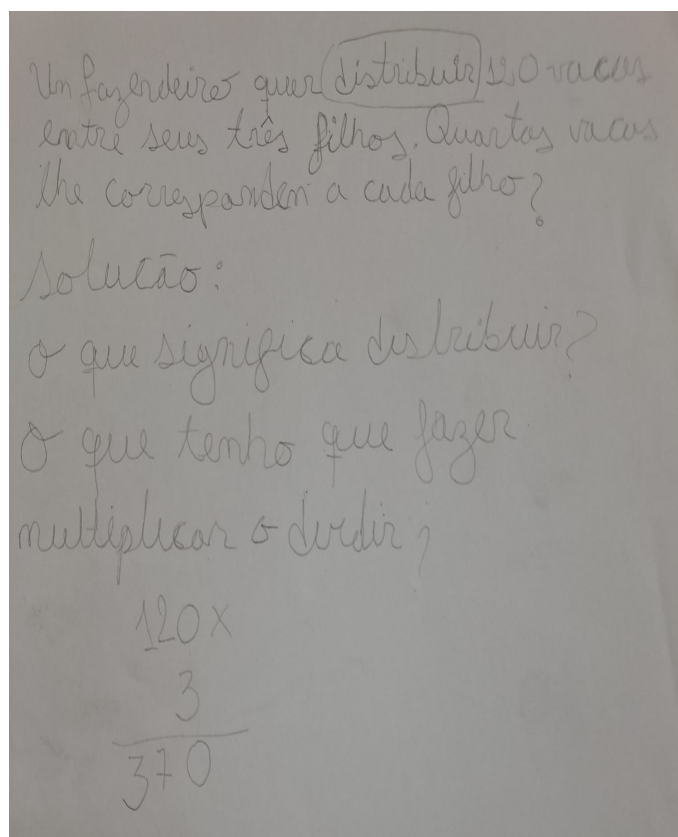 Un fazendeiro quer distribuir 120 vacas
entre seus três filhos. Quantas vacas
lhe corresponden a cada filho?
Solucão:
O que significa distribuir?
O que tenho que fazer
multiplicar o dividir?
120x
3
370